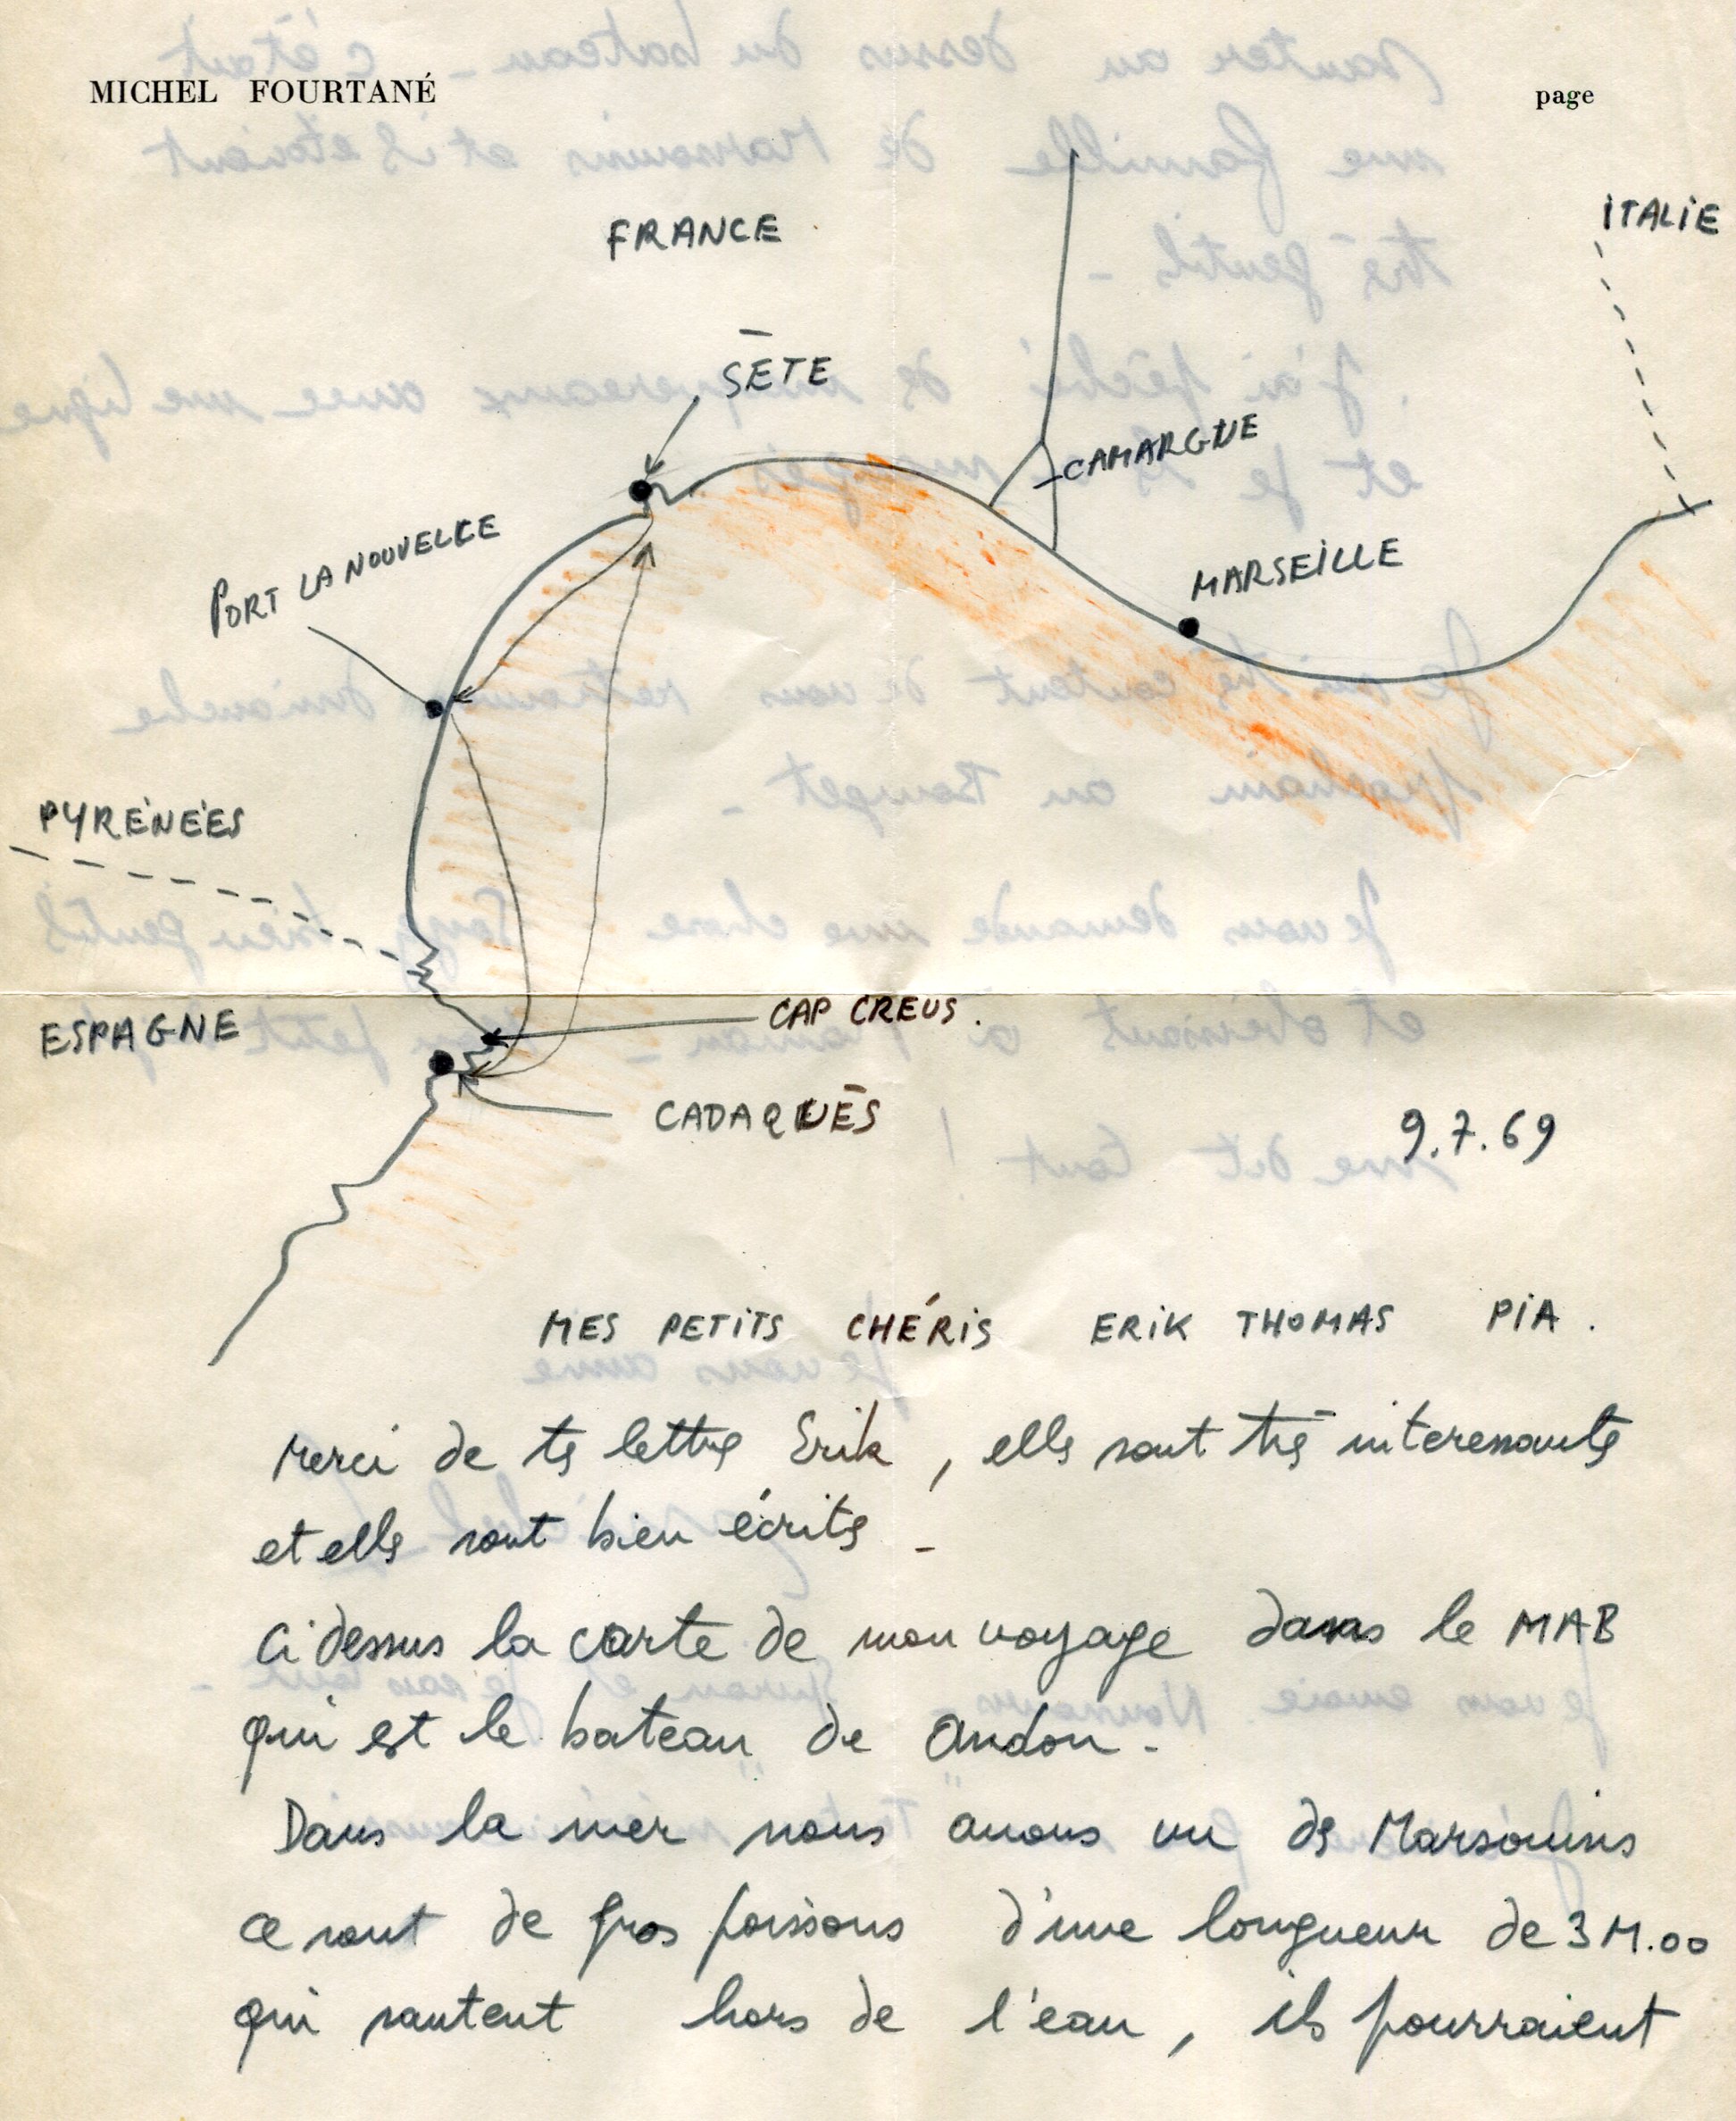 MICHEL FOURTANÉ
page
FRANCE
ITALIE
SÈTE
CAMARGUE
PORT LA NOUVELLE
MARSEILLE
PYRÉNÉES
ESPAGNE
CAP CREUS.
CADAQUÈS
9.7.69
MES PETITS CHÉRIS ERIK THOMAS PIA.
merci de tes lettres Erik, elles sont très interessantes
et elles sont bien écrites -
Ci dessus la carte de mon voyage dans le MAB
qui est le bateau de Andon -
Dans la mer nous avons vu des Marsouins
ce sont de gros poissons d'une longueur de 3M.00
qui sautent hors de l'eau, ils pourraient